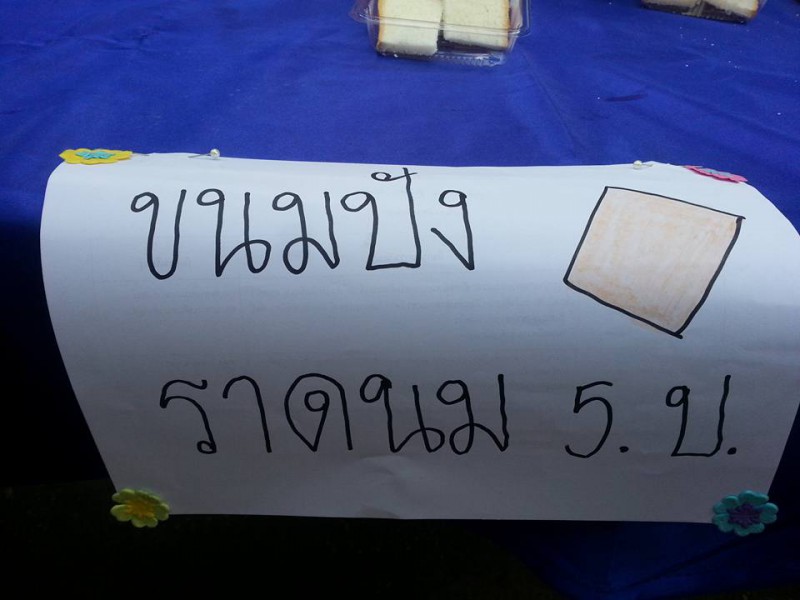 ขนมปัง
ราดนม 5. บ.